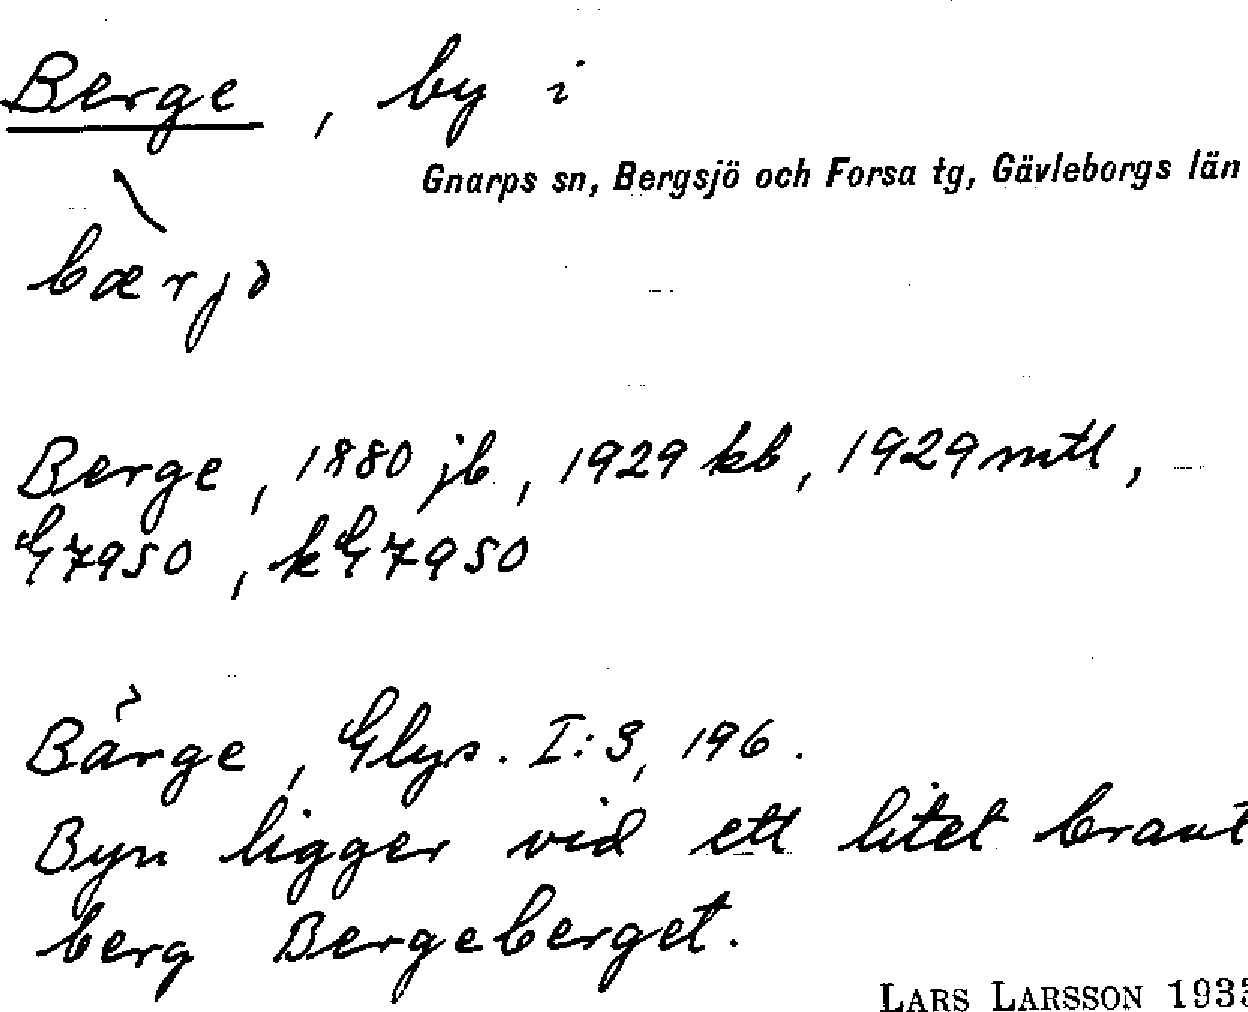 Berge, by i
Gnarps sn, Bergsjö och Forsa tg, Gävleborgs län
bærjə
Berge, 1880 jb, 1929 kb, 1929 mtl,
G7950, kG7950
Bärge, Glys. I:3, 196.
Byn ligger vid ett litet brant
berg Bergeberget.
LARS LARSSON 1935